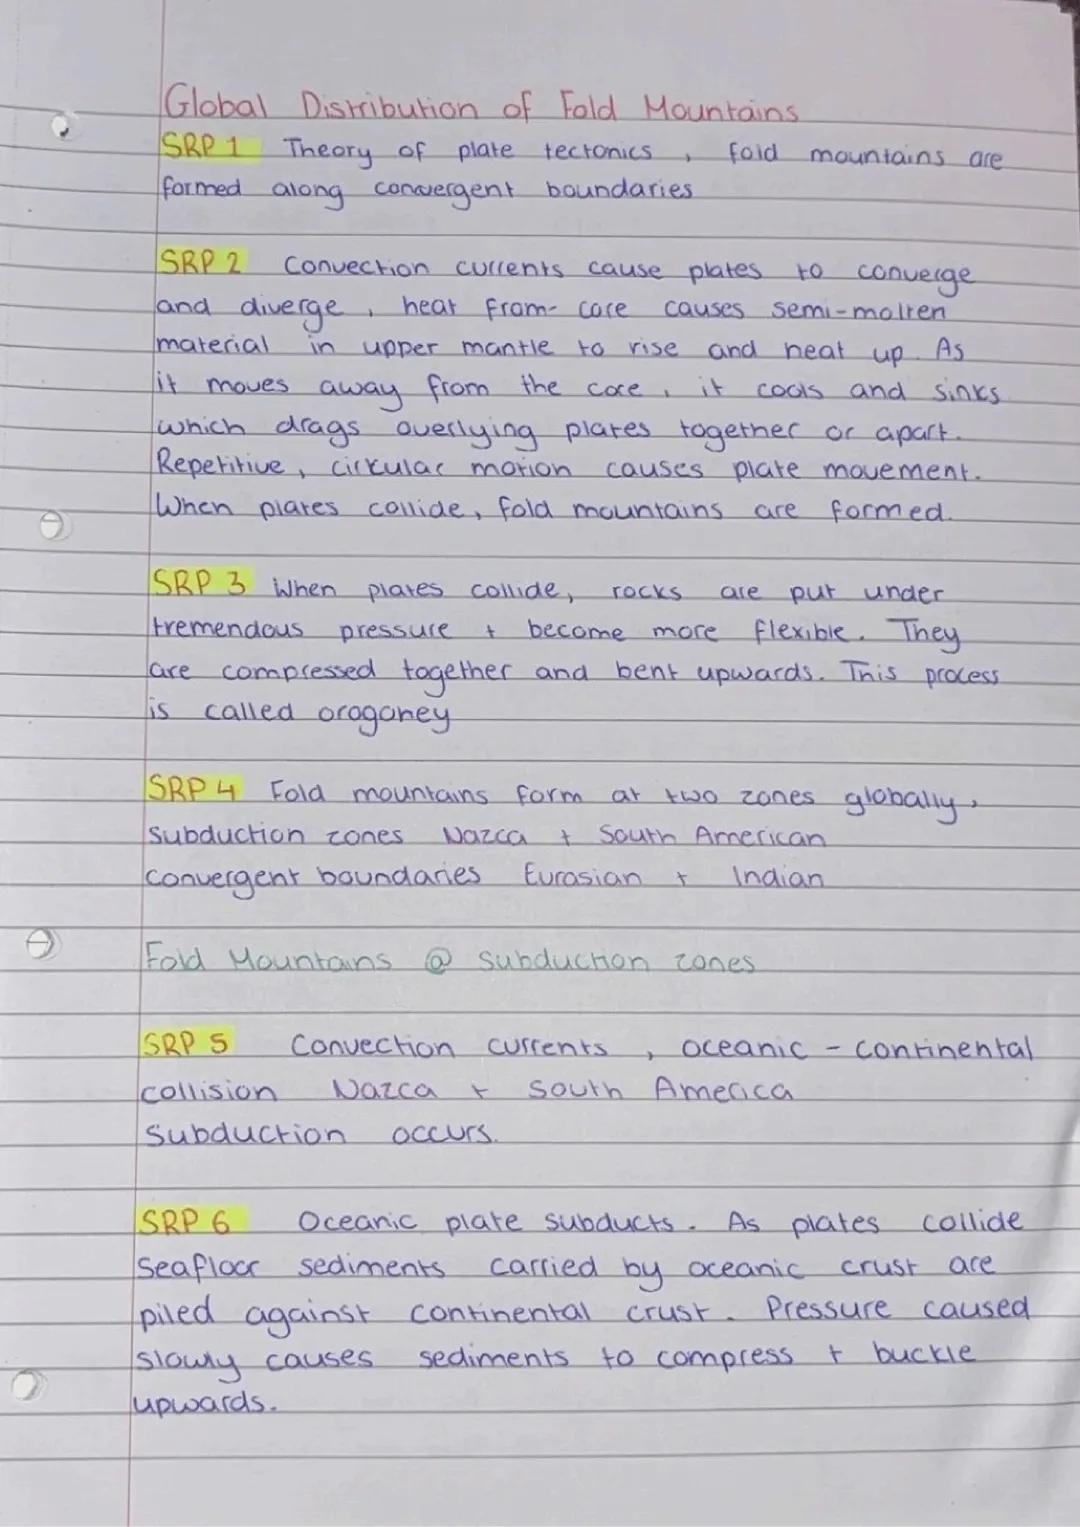 Global Distribution of Fold Mountains
SRP 1 Theory of plate tectonics , fold mountains are
formed along convergent boundaries
SRP 2 Convection currents cause plates to converge
and diverge , heat from core causes semi-molten
material in upper mantle to rise and heat up. As
it moves away from the core , it cools and sinks
which drags overlying plates together or apart.
Repetitive , circular motion causes plate movement.
When plates collide, fold mountains are formed.
SRP 3 When plates collide, rocks are put under
tremendous pressure + become more flexible. They
are compressed together and bent upwards. This process
is called orogoney
SRP 4 Fold mountains form at two zones globally,
subduction zones Nazca + South American
convergent boundaries Eurasian + Indian
Fold Mountains @ subduction zones
SRP 5 Convection currents , oceanic - continental
collision Nazca + South America
Subduction occurs.
SRP 6 Oceanic plate subducts. As plates collide
seafloor sediments carried by oceanic crust are
piled against continental crust. Pressure caused
slowly causes sediments to compress + buckle
upwards.